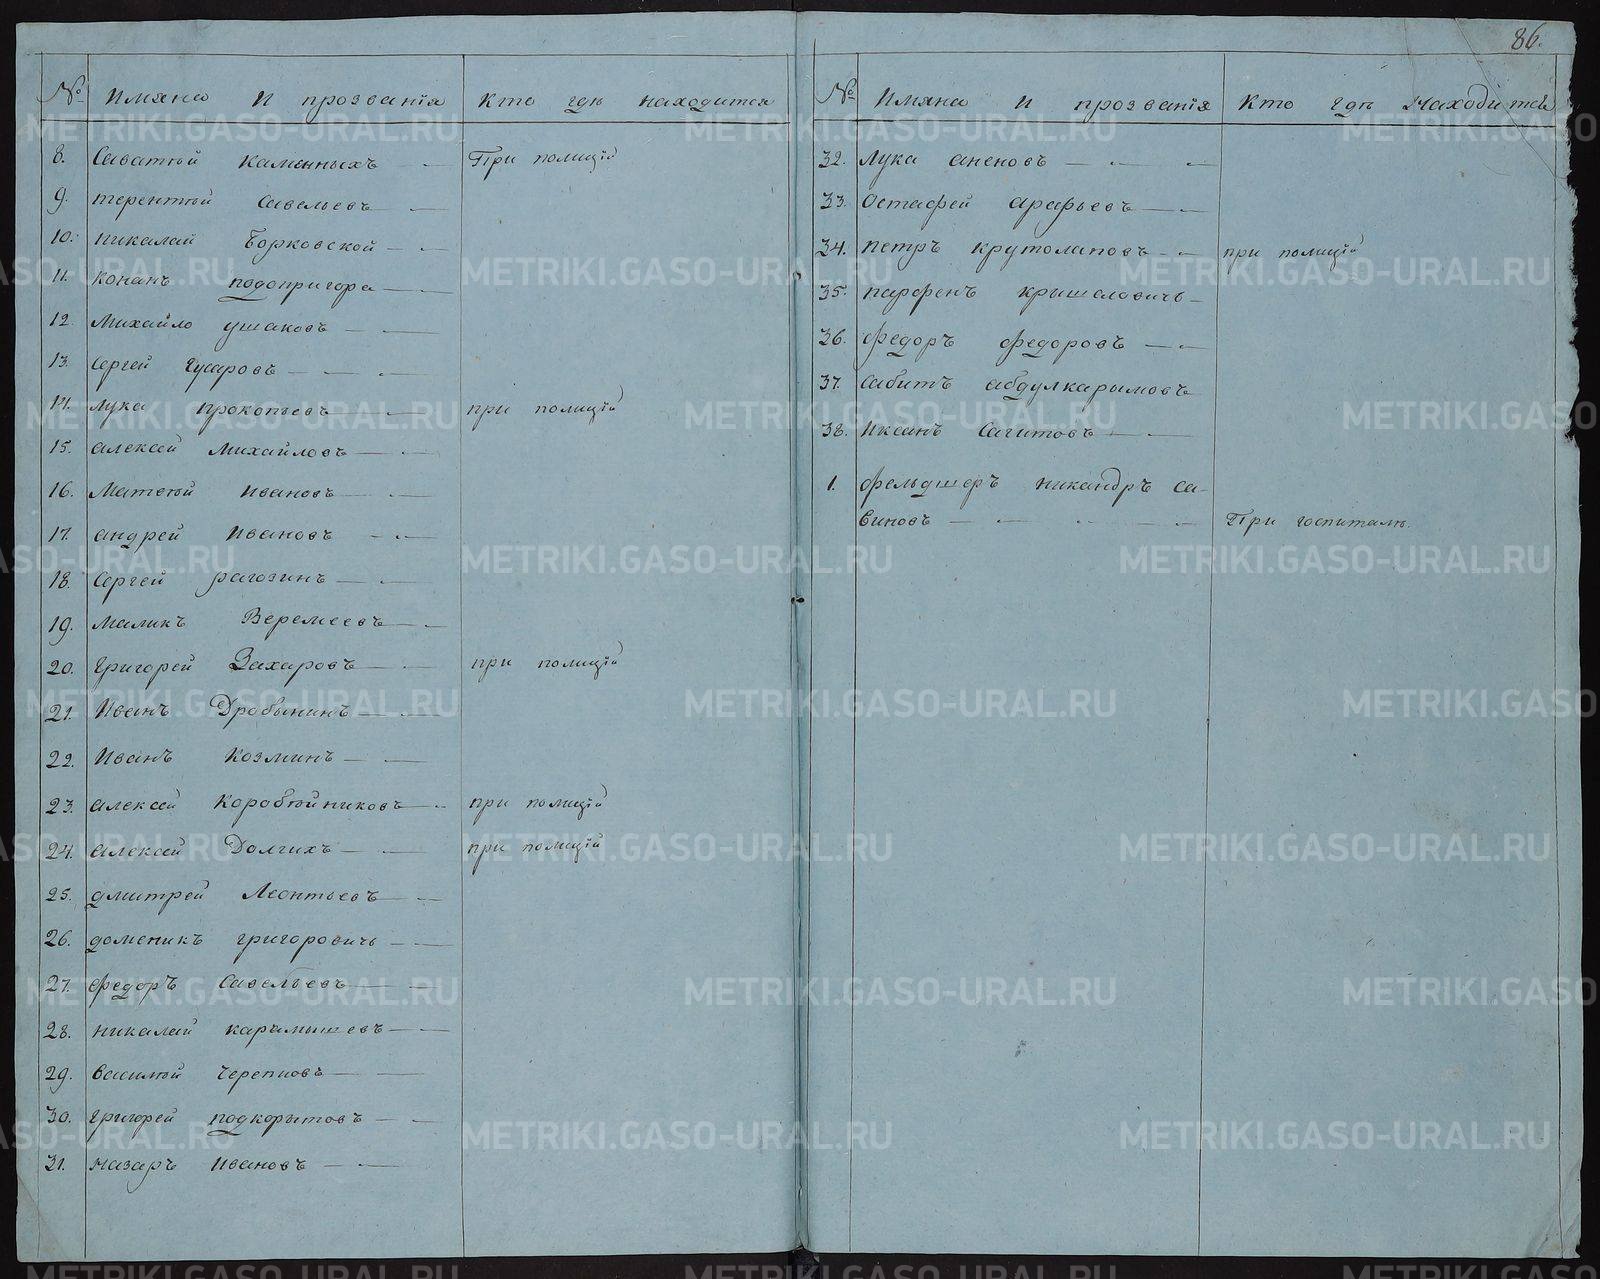 86.
№ Имяна И прозвания Кто гдѣ находится
8. Саватѣй Каменныхъ При полиціи
9. терентѣй Савельевъ
10. никалай Борковской
11. Конанъ подопригора
12. Михайло ушаковъ
13. Сергей Гусаровъ
14. лука прокопьевъ при полиціи
15. алексей Михайловъ
16. Матвѣй ивановъ
17. андрей Ивановъ
18. Сергей рагозинъ
19. маликъ Веремеевъ
20. Григорей Захаровъ при полиціи
21. Иванъ Дробынинъ
22. Иванъ Козминъ
23. алексей Коробѣйниковъ при полиціи
24. алексей Долгихъ при полиціи
25. дмитрей Леонтьевъ
26. доменикъ григоровичь
27. федоръ Савельевъ
28. никалай карамышевъ
29. василѣй Черепновъ
30. Григорей подкорытовъ
31. назаръ ивановъ
№ Имяна И прозвания Кто гдѣ Находится
32. лука аненовъ
33. Остафей арафьевъ
34. петръ крутолаповъ при полиціи
35. парфенъ кришаловичь
36. федоръ федоровъ
37. сабитъ абдулкарымовъ
38. Иксанъ Сагитовъ
1. фельдшеръ никандръ са-
виновъ При госпиталѣ.
METRIKI.GASO-URAL.RU